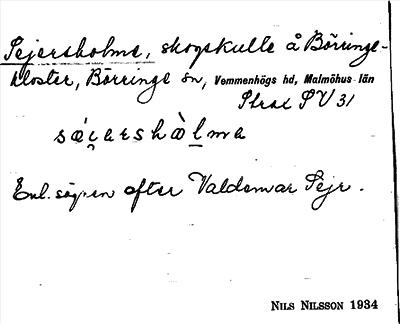 Sejersholme, skogskulle å Börringe-
kloster, Börringe sn, Vemmenhögs hd, Malmöhus län
SV 31
sæ̀i̯ershòlma
Enl. sägnen efter Valdemar Sejr.
NILS NILSSON 1934